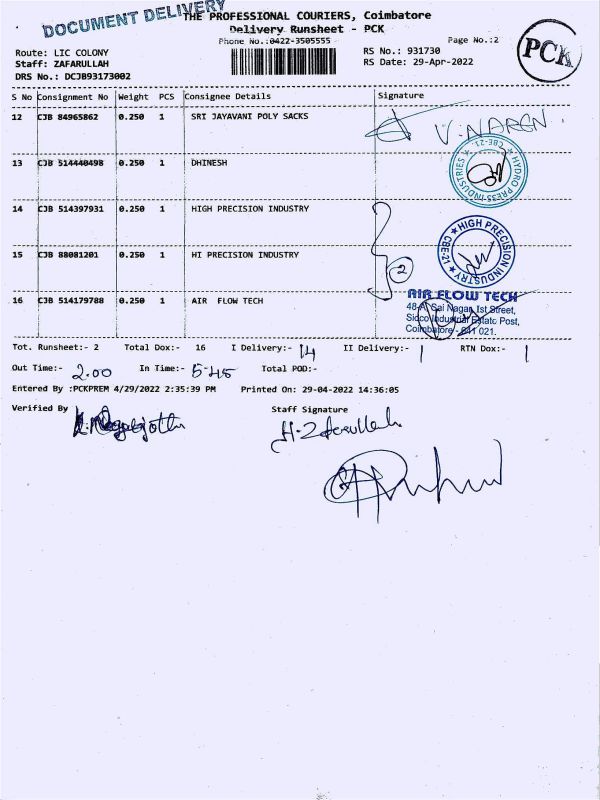 DOCUMENT DELIVERY
THE PROFESSIONAL COURIERS, Coimbatore
Delivery Runsheet - PCK
Phone No.:0422-3505555
Page No.:2
PCK
Route: LIC COLONY
Staff: ZAFARULLAH
DRS No.: DCJB93173002
RS No.: 931730
RS Date: 29-Apr-2022
S No Consignment No Weight PCS Consignee Details Signature
12 CJB 84965862 0.250 1 SRI JAYAVANI POLY SACKS
V.NAREN.
13 CJB 514440498 0.250 1 DHINESH
HYDRO PRESS INDUSTRIES ★ CBE-21. ★
14 CJB 514397931 0.250 1 HIGH PRECISION INDUSTRY
★ HIGH PRECISION INDUSTRY ★ CBE-21
2
15 CJB 88081201 0.250 1 HI PRECISION INDUSTRY
16 CJB 514179788 0.250 1 AIR FLOW TECH
AIR FLOW TECH
48-A, Sai Nagar, Ist Street,
Sidco Industrial Estate Post,
Coimbatore - 641 021.
Tot. Runsheet:- 2 Total Dox:- 16 I Delivery:- 14 II Delivery:- 1 RTN Dox:- 1
Out Time:- 2.00 In Time:- 5-45 Total POD:-
Entered By :PCKPREM 4/29/2022 2:35:39 PM Printed On: 29-04-2022 14:36:05
Verified By Staff Signature